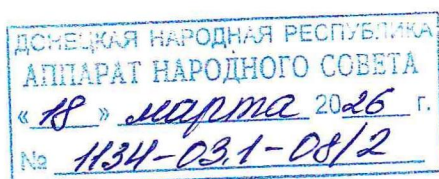 ДОНЕЦКАЯ НАРОДНАЯ РЕСПУБЛИКА
АППАРАТ НАРОДНОГО СОВЕТА
«18» марта 2026 г.
№ 1134-03.1-08/2